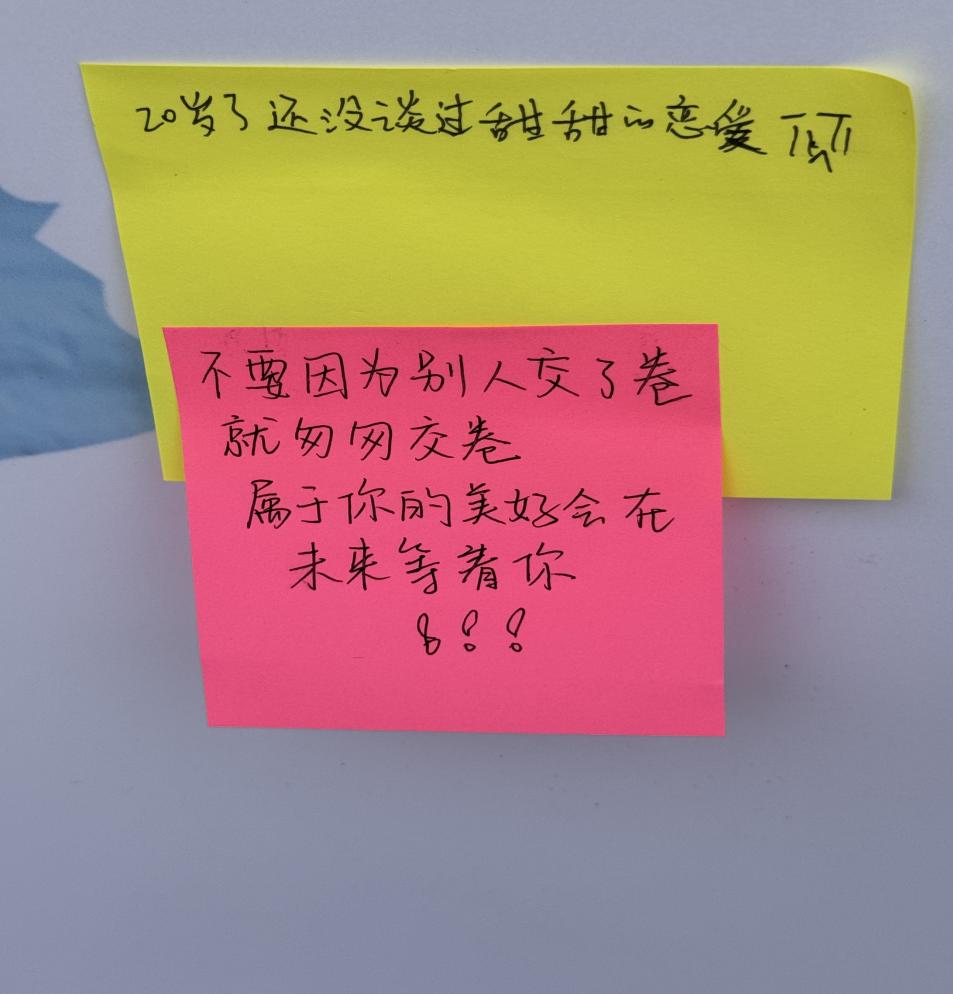 20岁了还没谈过甜甜的恋爱
不要因为别人交了卷
就匆匆交卷
属于你的美好会在
未来等着你
!!!